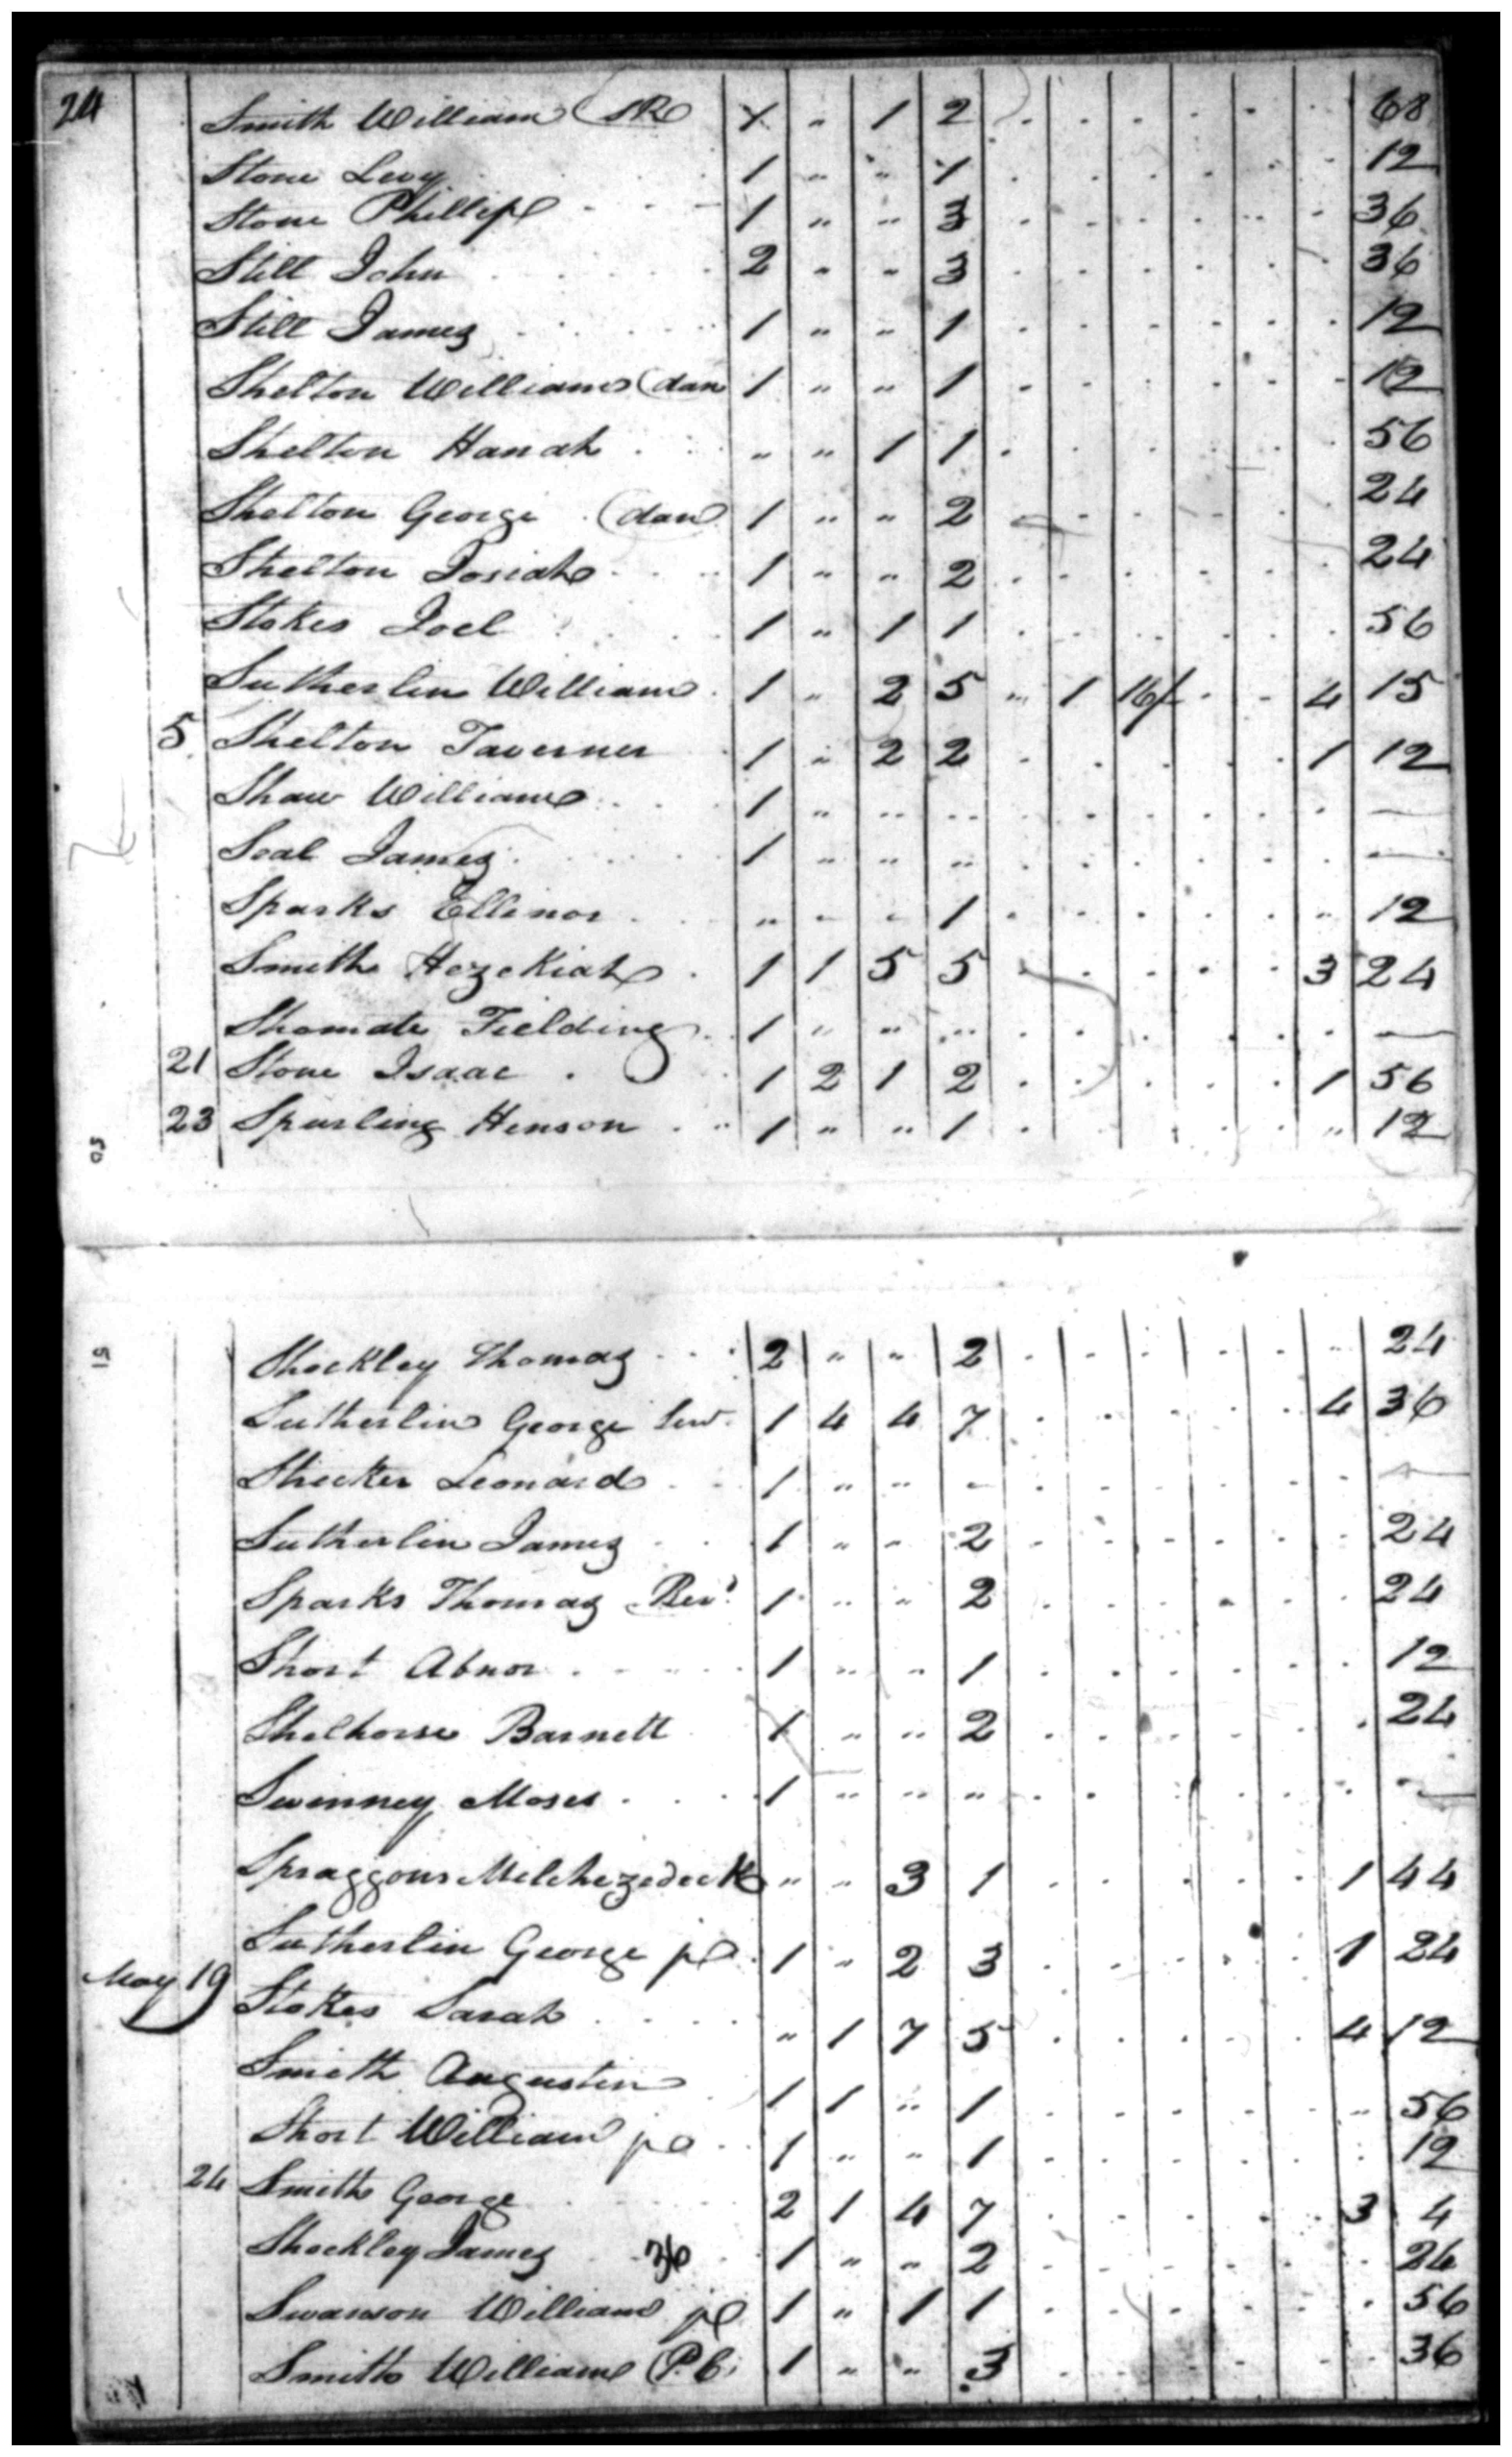 24 Smith William (SR) 1 " 1 2 68
Stone Levy 1 " " 1 12
Stone Phillip 1 " " 3 36
Still John 2 " " 3 36
Still James 1 " " 1 12
Shelton William (dan 1 " " 1 12
Shelton Hanah " " 1 1 56
Shelton George (dan) 1 " " 2 24
Shelton Josiah 1 " " 2 24
Stokes Joel 1 " 1 1 56
Sutherlin William 1 " 2 5 " 1 16/ 4 15
5 Shelton Taverner 1 " 2 2 1 12
Shaw William 1 " " " —
Seal James 1 " " " —
Sparks Ellinor " " " 1 " 12
Smith Hezekiah 1 1 5 5 3 24
Shomate Fielding 1 " " " —
21 Stone Isaac 1 2 1 2 1 56
23 Spurling Henson 1 " " 1 " 12
50
51
Shockley Thomas 2 " " 2 24
Sutherlin George Senr 1 4 4 7 4 36
Shecker Leonard 1 " " " —
Sutherlin James 1 " " 2 24
Sparks Thomas Revd 1 " " 2 24
Short Abnor 1 " " 1 12
Shelhorse Barnett 1 " " 2 24
Swinney Moses 1 " " " —
Spraggons Melchezedeck " " 3 1 1 44
Sutherlin George jr 1 " 2 3 1 24
May 19 Stokes Sarah " 1 7 5 4 12
Smith Augustin 1 1 " 1 " 56
Short William jr 1 " " 1 12
24 Smith George 2 1 4 7 3 4
Shockley James 36 1 " " 2 24
Swanson William jr 1 " 1 1 56
Smith William (P.C. 1 " " 3 36